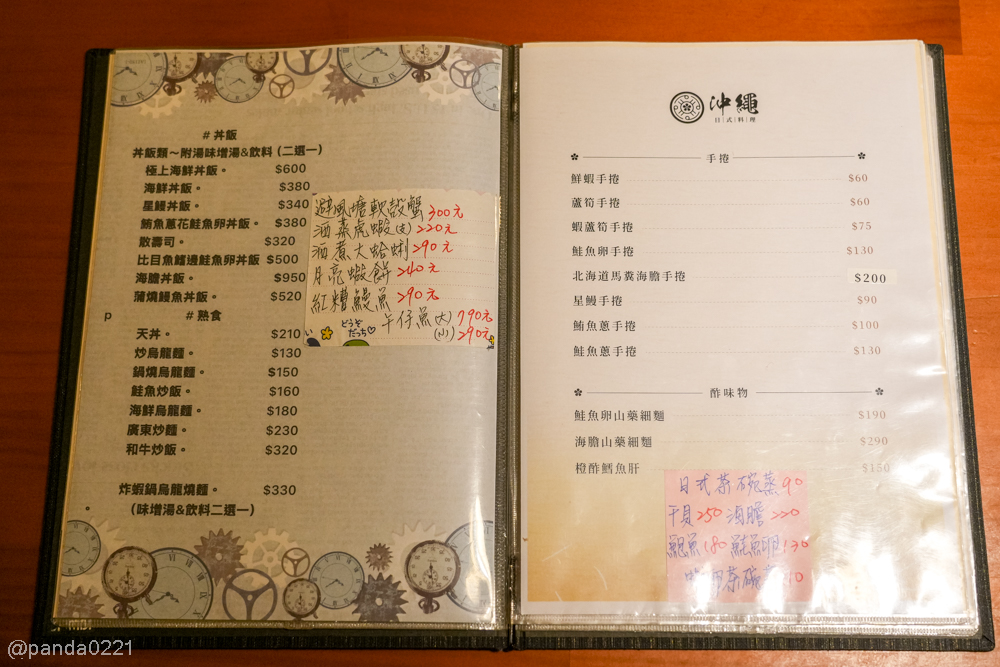 # 丼飯
丼飯類～附湯味增湯&飲料 (二選一)
極上海鮮丼飯。 $600
海鮮丼飯。 $380
星鰻丼飯。 $340
鮪魚蔥花鮭魚卵丼飯。 $380
散壽司。 $320
比目魚鰭邊鮭魚卵丼飯 $500
海膽丼飯。 $950
蒲燒鰻魚丼飯。 $520
p # 熟食
天丼。 $210
炒烏龍麵。 $130
鍋燒烏龍麵。 $150
鮭魚炒飯。 $160
海鮮烏龍麵。 $180
廣東炒麵。 $230
和牛炒飯。 $320
炸蝦鍋烏龍燒麵。 $330
。 （味增湯&飲料二選一）
避風塘軟殼蟹 300元
酒蒸虎蝦(支) 220元
酒煮大蛤蜊 290元
月亮蝦餅 240元
紅糟鰻魚 290元
午仔魚(大) 790元
(小) 290元
どうぞ
沖繩
日式料理
手捲
鮮蝦手捲 $60
蘆筍手捲 $60
蝦蘆筍手捲 $75
鮭魚卵手捲 $130
北海道馬糞海膽手捲 $200
星鰻手捲 $90
鮪魚蔥手捲 $100
鮭魚蔥手捲 $130
酢味物
鮭魚卵山藥細麵 $190
海膽山藥細麵 $290
橙酢鱈魚肝 $150
日式茶碗蒸 90
干貝250 海膽220
鮑魚180 鮭魚卵130
茶碗
@panda0221